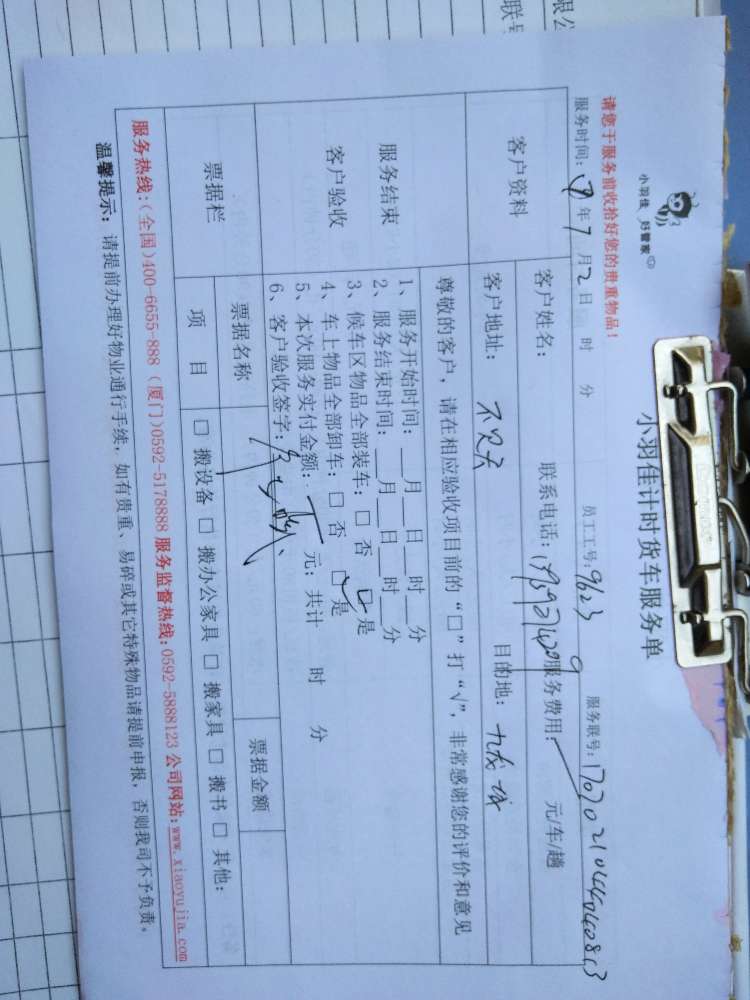 限公
联号
小羽佳 好管家
小羽佳计时货车服务单
请您于服务前收拾好您的贵重物品！
服务时间：17年7月2日 时 分 员工工号：9623 服务联号：
客户资料 客户姓名： 联系电话： 服务费用： 元/车/趟
客户地址： 目的地：九龙城
尊敬的客户，请在相应验收项目前的“□”打“√”，非常感谢您的评价和意见
服务结束
客户验收
1、服务开始时间：__月__日__时__分
2、服务结束时间：__月__日__时__分
3、候车区物品全部装车：□ 否 □ 是
4、车上物品全部卸车：□ 否 □ 是
5、本次服务实付金额： 元；共计 时 分
6、客户验收签字：
票据栏 票据名称 票据金额
项 目 □ 搬设备 □ 搬办公家具 □ 搬家具 □ 搬书 □ 其他：
服务热线：(全国)400-6655-888 (厦门)0592-5178888 服务监督热线：0592-5888123 公司网站：www.xiaoyujia.com
温馨提示：请提前办理好物业通行手续，如有贵重、易碎或其它特殊物品请提前申报，否则我司不予负责。